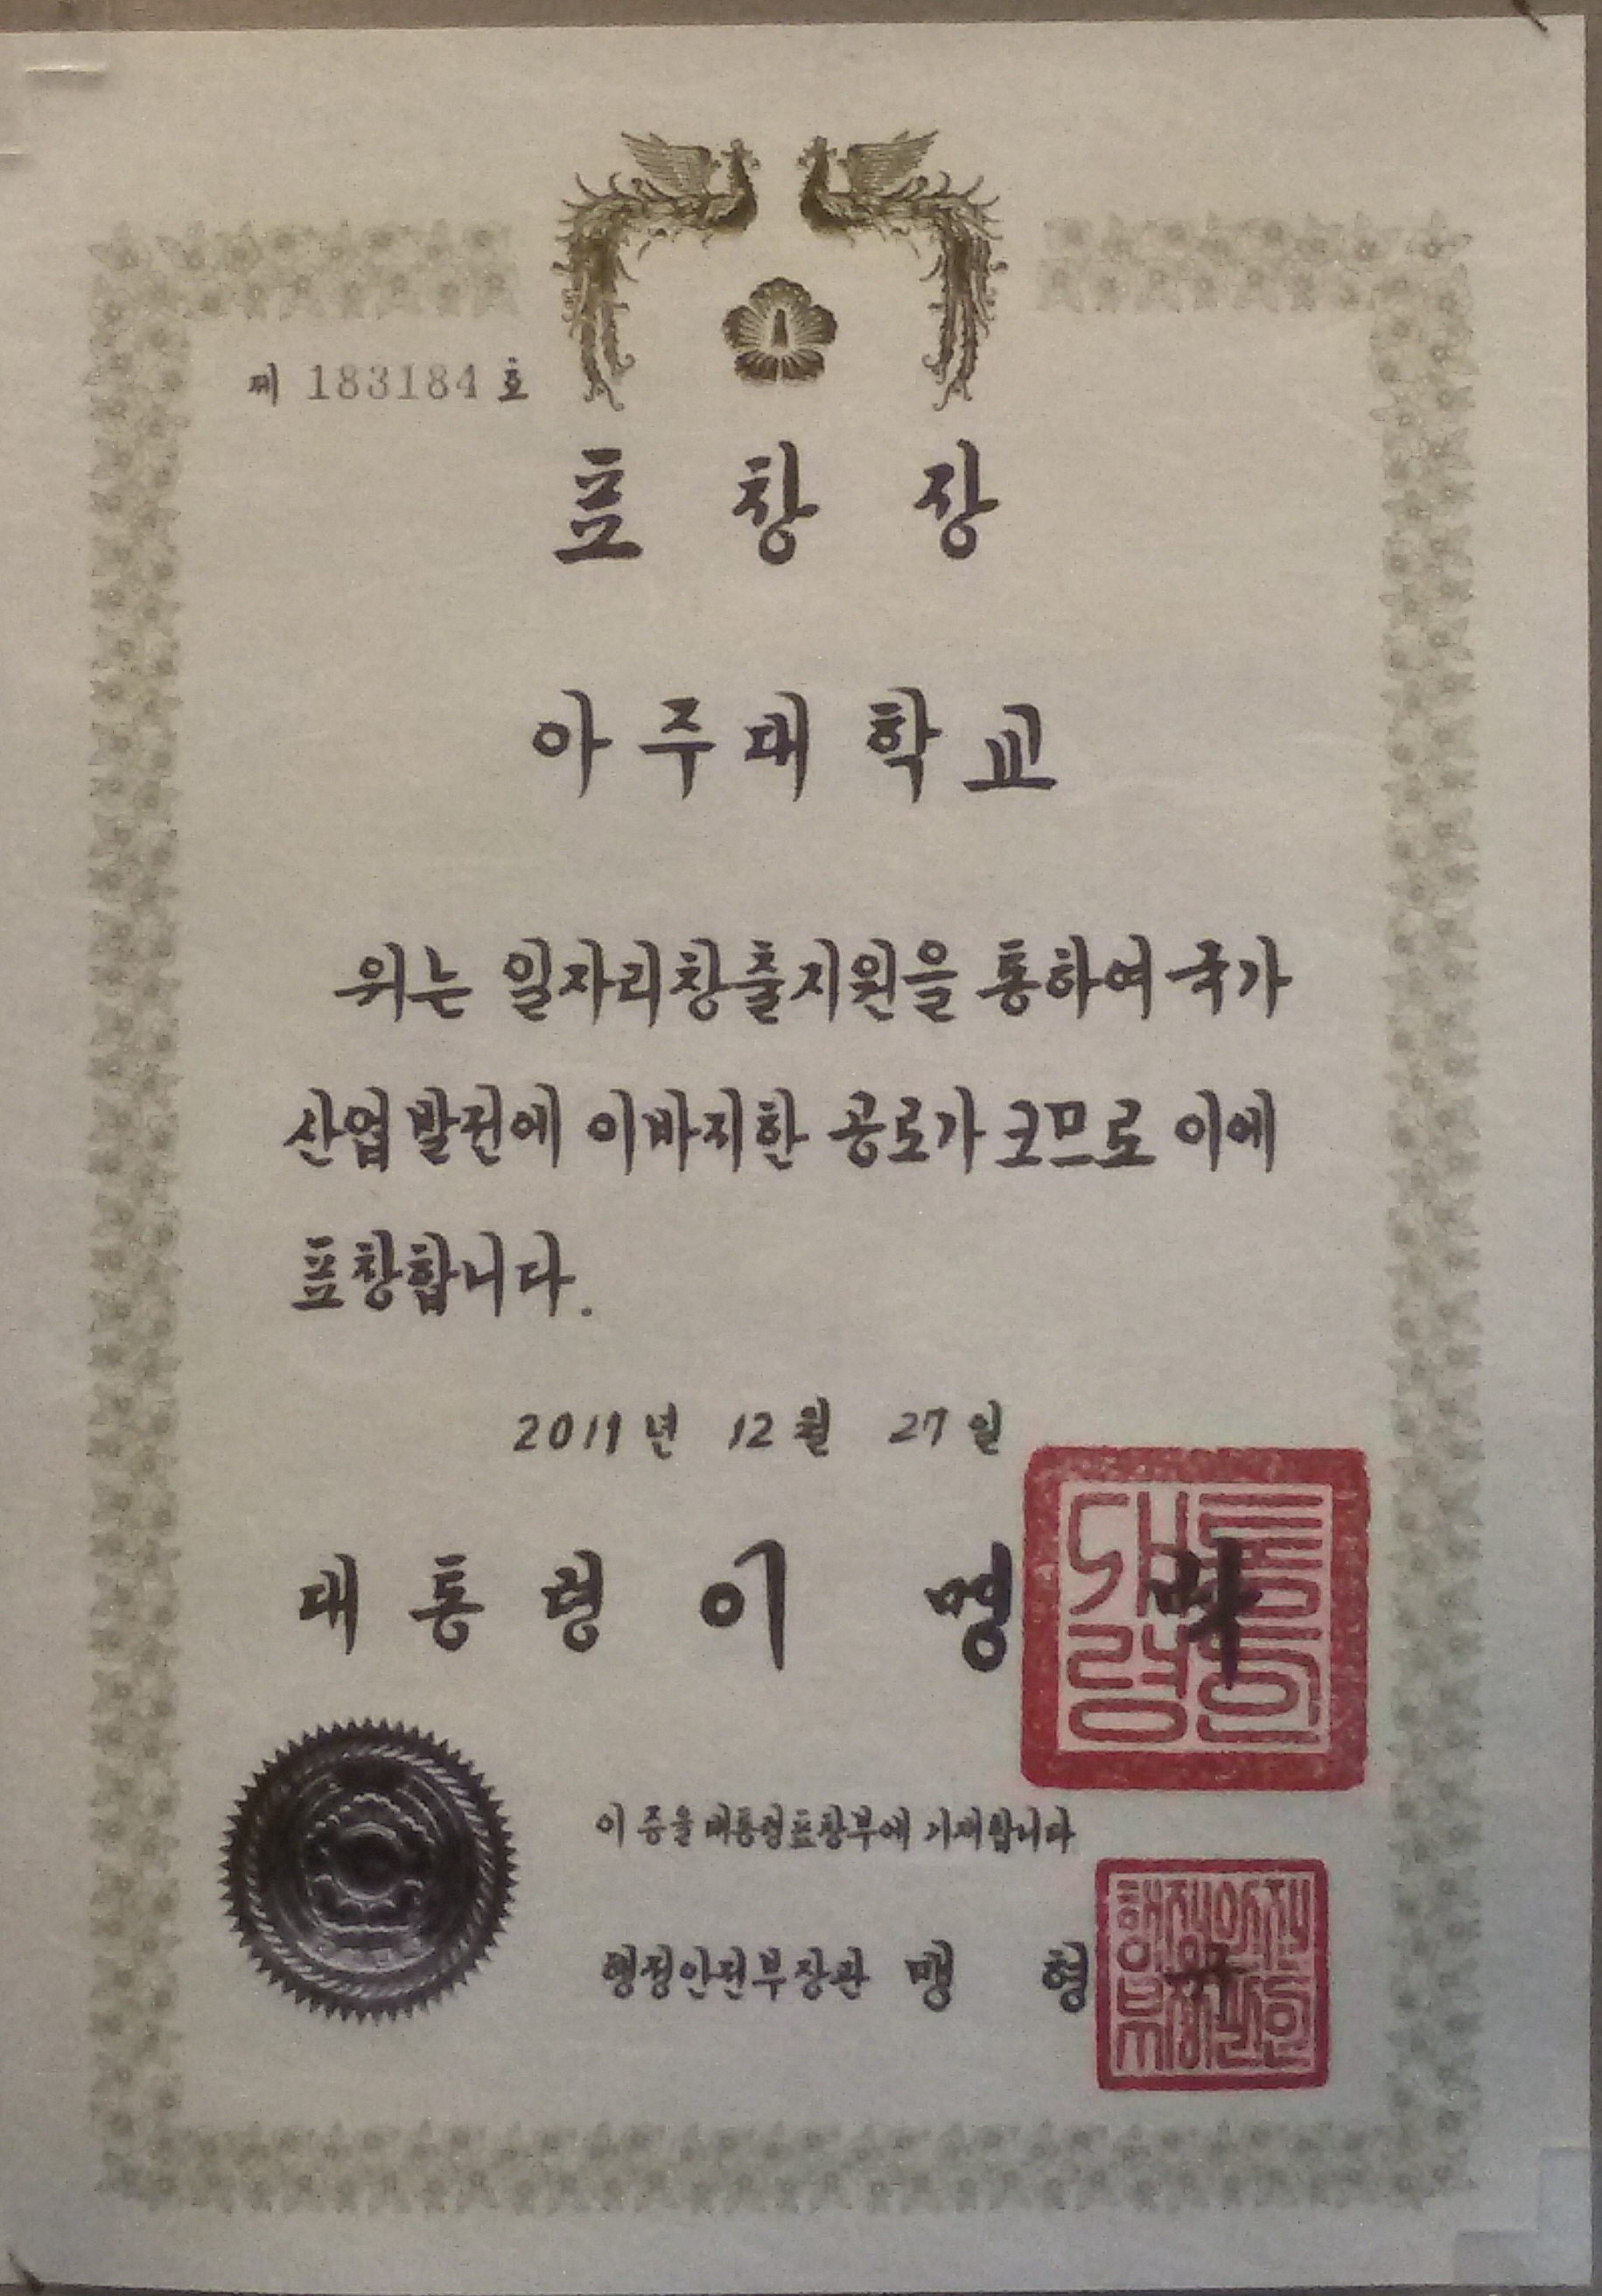 제 183184 호
표 창 장
아 주 대 학 교
위는 일자리창출지원을 통하여 국가
산업 발전에 이바지한 공로가 크므로 이에
표창합니다.
2011년 12월 27일
대 통 령 이 명 박
대통령인
이 증을 대통령표창부에 기재합니다
행정안전부장관 맹 형 규
행정안전부장관인